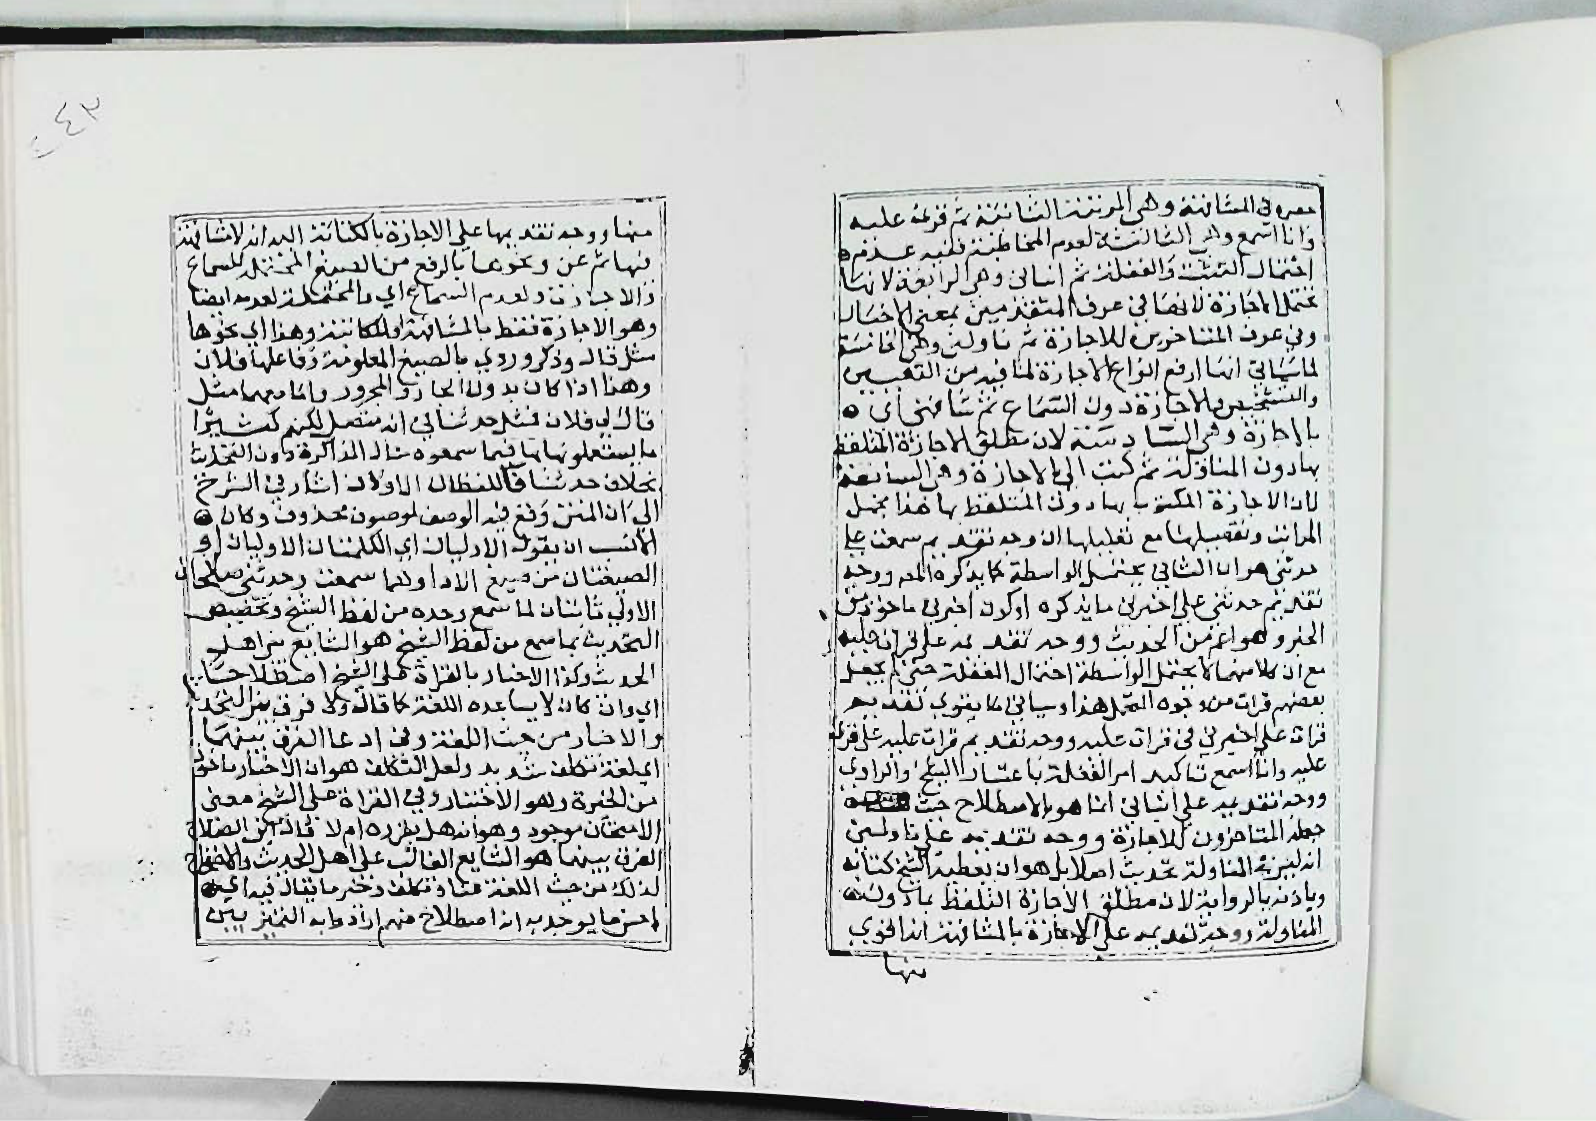 وهي المرتبة الثانية ثم قرئ عليه
وانا اسمع وهي الثالثة لعدم المخاطبة فيه
احتمال التثبت والغفلة ثم انباني وهي الرابعة لانها
تحتمل الاجازة لانها في عرف المتقدمين بمعنى الاخبار
وفي عرف المتاخرين للاجازة ثم ناولني وهي الخامسة
لما سياتي انها ارفع انواع الاجازة لما فيه من التعيين
والتشخيص بالاجازة دون السماع ثم شافهني اي
بالاجازة وهي السادسة لان مطلق الاجازة المتلفظ
بها دون المناولة ثم كتب الي بالاجازة وهي السابعة
لان الاجازة المكتوب بها دون المتلفظ بها هذا مجمل
المراتب وتفصيلها مع تعليلها ان وجه تقديم سمعت على
حدثني هو ان الثاني يحتمل الواسطة كما يذكره المص ووجه
تقديم حدثني على اخبرني ما يذكره او لان اخبرني ماخوذ من
الخبر وهو اعم من الحديث ووجه تقديمه على قرات عليه
مع ان كلا منهما لا يحتمل الواسطة احتمال الغفلة حتى لم يجعل
بعضهم قرات من وجوه التحمل هذا وسياتي ما يقوي تقديم
قرات على اخبرني في قرات عليه ووجه تقديم قرات عليه على قرئ
عليه وانا اسمع تاكيد امر الغفلة باعتبار الشيخ والراوي
ووجه تقديمه على انباني انما هو بالاصطلاح حيث
جعله المتاخرون للاجازة ووجه تقديمه على ناولني
انه ليس في المناولة تحديث اصلا بل هو ان يعطيه الشيخ كتابه
وياذنه بالرواية لان مطلق الاجازة التلفظ بها دون
المناولة ووجه تقديمه على الاجازة بالمشافهة انه اقوى
منها
منها ووجه تقديمها على الاجازة بالكتابة اليه انه لا مشافهة
فيها ثم عن ونحوها بالرفع من الصيغ المحتملة للسماع
والاجازة ولعدم السماع اي والمحتملة لعدمه ايضا
وهو الاجازة فقط بالمشافهة او المكاتبة وهذا اي نحوها
مثل قال وذكر وروي بالصيغ المعلومة وفاعلها فلان
وهذا اذا كان بدون الجار والمجرور واما معهما مثل
قال لي فلان فمثل حدثنا في انه متصل لكنهم كثيرا
ما يستعملونها فيما سمعوه حال المذاكرة دون التحديث
بخلاف حدثنا فاللفظان الاولان اشار في الشرح
الى ان المتن وقع فيه الوصف لموصوف محذوف وكان
الانسب ان يقول الاوليان اي الكلمتان الاوليان او
الصيغتان من صيغ الادا وهما سمعت وحدثني صالحان
الاولى ثابتان لما سمع وحده من لفظ الشيخ وتخصيص
التحديث بما سمع من لفظ الشيخ هو الشايع بين اهل
الحديث وكذا الاخبار بالقراة على الشيخ اصطلاحا
اي وان كان لا يساعده اللغة كما قال ولا فرق بين التحديث
والاخبار من حيث اللغة وفي ادعا الفرق بينهما
اي لغة تكلف شديد ولعل التكلف هو ان الاخبار ماخوذ
من الخبرة وهو الاختبار وفي القراة على الشيخ معنى
الامتحان موجود وهو انه هل يقرره ام لا
الفرق بينهما هو الشايع الغالب على اهل الحديث والاحتجاج
لذلك من حيث اللغة عنا وتكلف وخير ما يقال فيه اي
احسن ما يوجد به انه اصطلاح منهم ارادوا به التمييز بين
٤٣